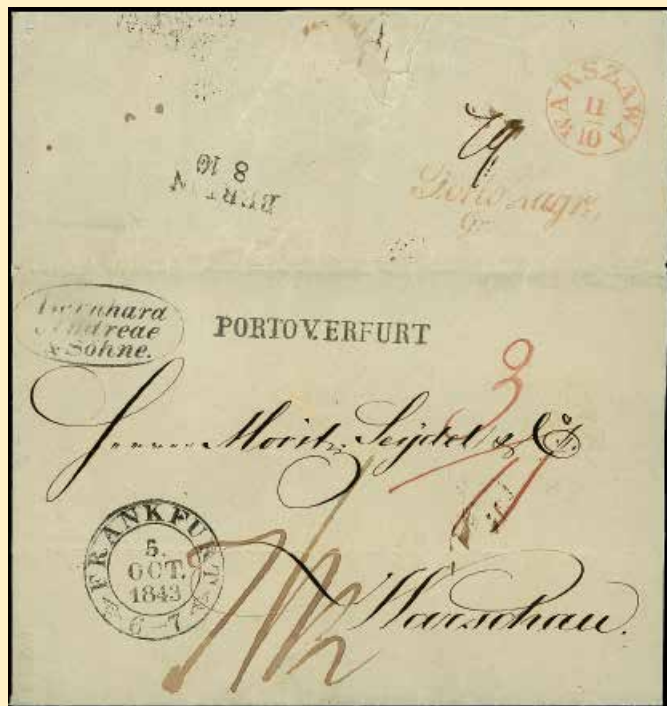 WARSZAWA
11
10
8 10
Bernhard
Andreae
& Söhne.
PORTO V. ERFURT
3
Moritz Seydel & Co.
11
FRANKFURT
5.
OCT.
1843
6-7
Warschau.